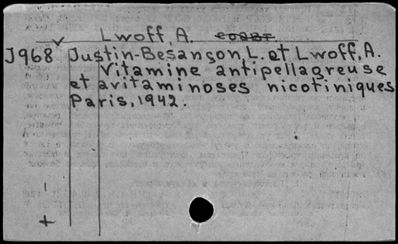 Lwoff, A.
J968 Justin-Besançon, L. et Lwoff, A.
Vitamine antipellagreuse
et avitaminoses nicotiniques
Paris, 1942.